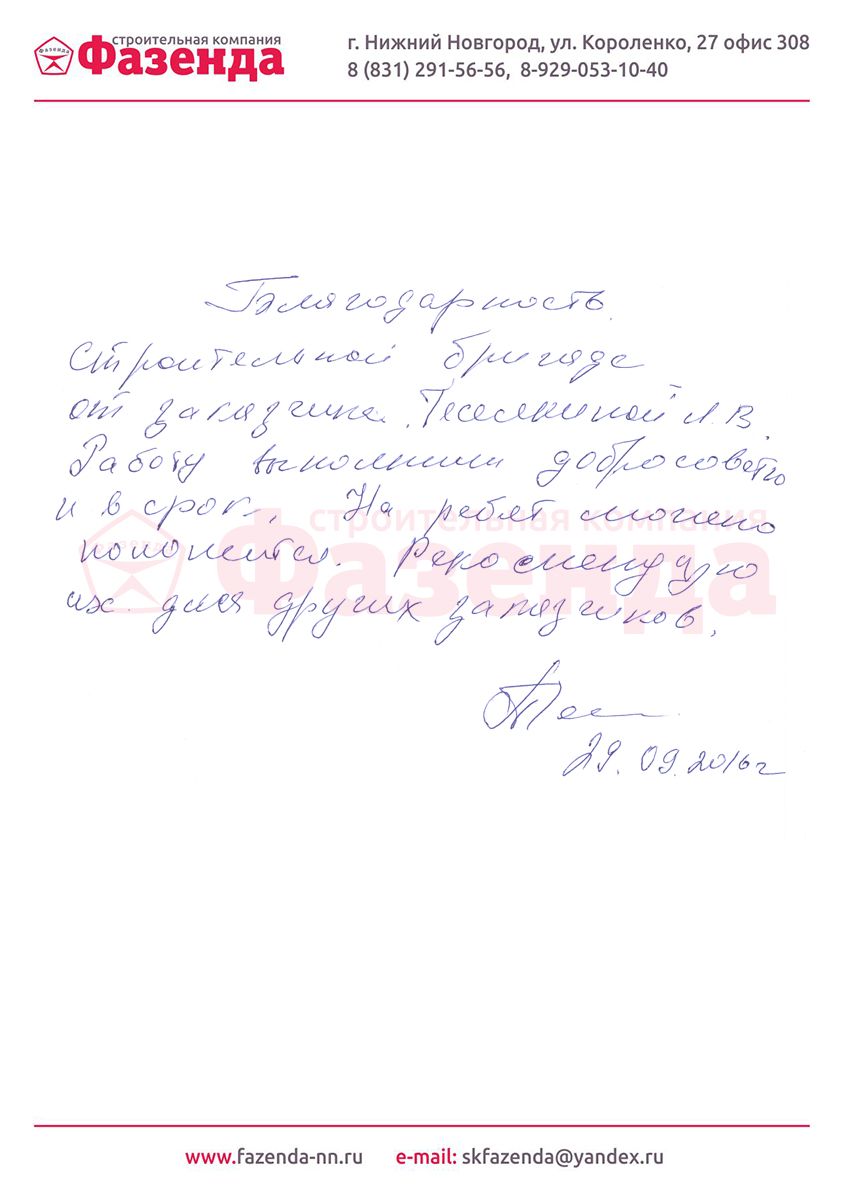 строительная компания
Фазенда
Фазенда
г. Нижний Новгород, ул. Короленко, 27 офис 308
8 (831) 291-56-56, 8-929-053-10-40
Благодарность
Строительной бригаде
от заказчика Л.В.
Работу выполнили добросовестно
и в срок. На ребят можно
положится. Рекомендую
их для других заказчиков.
29.09.2016г
строительная компания
Фазенда
www.fazenda-nn.ru e-mail: skfazenda@yandex.ru